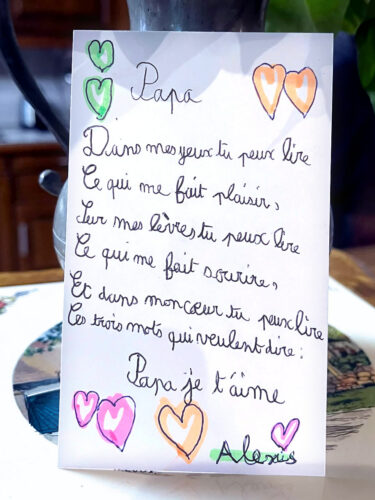 Papa
Dans mes yeux tu peux lire
Ce qui me fait plaisir,
Sur mes lèvres tu peux lire
Ce qui me fait sourire,
Et dans mon cœur tu peux lire
Ces trois mots qui veulent dire :
Papa je t'aime
Alexis